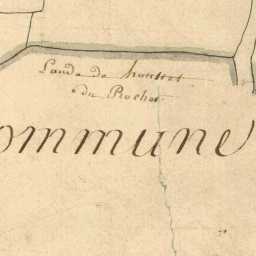 Lande de
du Rocher
ommune